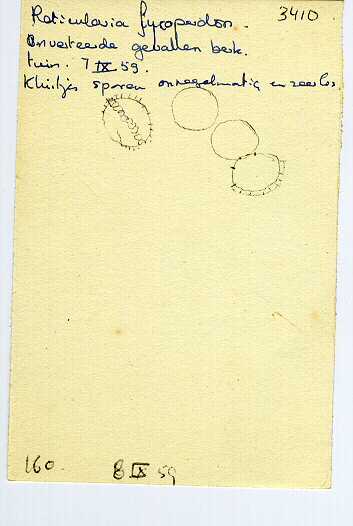 3410
Reticularia lycoperdon.
Onverteerde gevallen berk.
tuin. 7 IX 59.
Kluitjes sporen onregelmatig en zeer los.
160.
8 IX 59